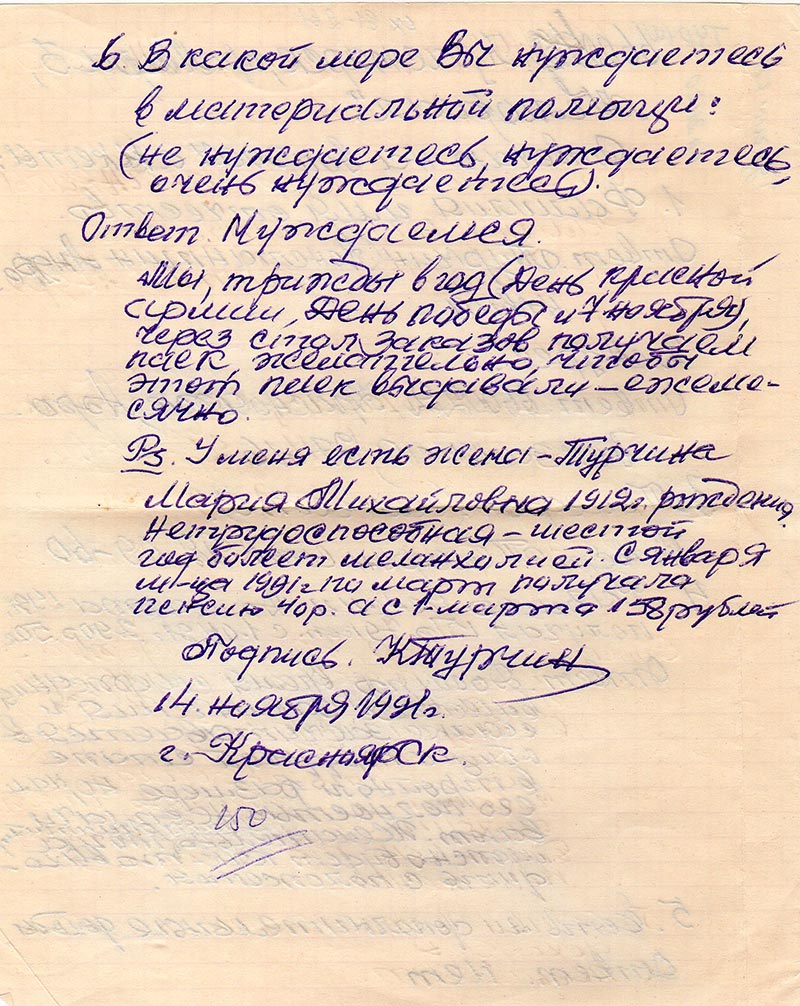 6 В какой мере Вы нуждаетесь
в материальной помощи:
(не нуждаетесь, нуждаетесь,
очень нуждаетесь).
Ответ Нуждаемся.
Мы, трижды в год (День красной
армии, День победы и 7 ноября),
через стол заказов получаем
паек, желательно, чтобы
этот паек выдавали – ежеме-
сячно.
Ps. У меня есть жена – Турчина
Мария Михайловна 1912г. рждения
нетрудоспособная – шестой
год болеет меланхолией. С января
м-ца 1991г. по март получала
пенсию 40р. а с 1-марта 158 рублей
Подпись. КТурчин
14. ноября 1991г.
г. Красноярск.
150
5. дополнительные
Ответ. Нет